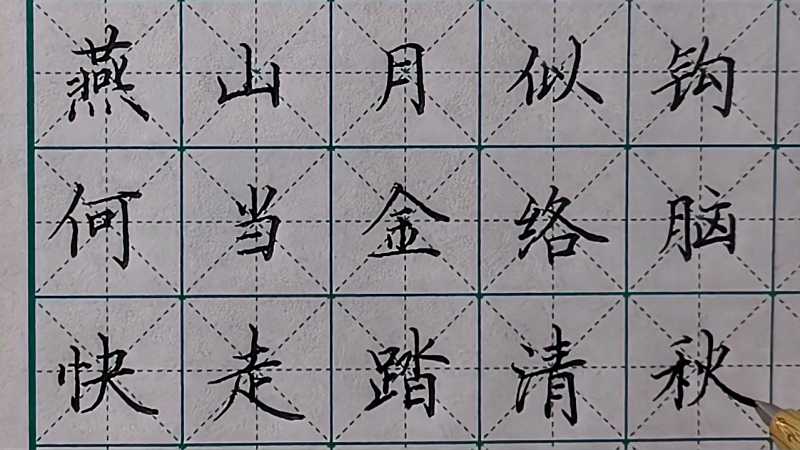 燕山月似钩
何当金络脑
快走踏清秋